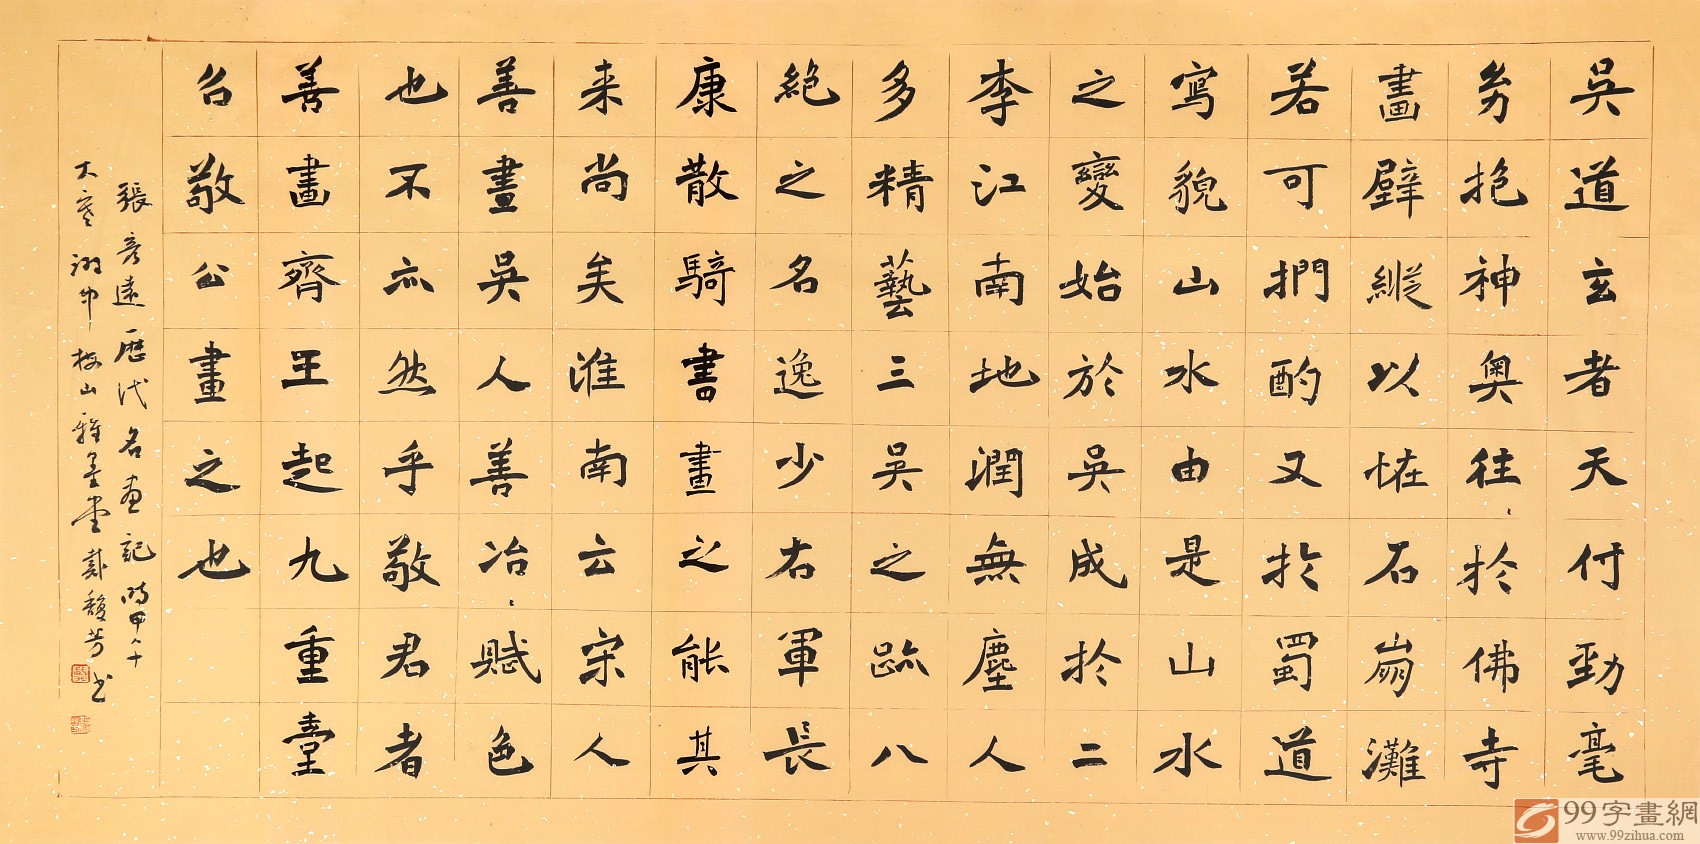 吳道玄者天付勁毫
㓜抱神奧往、於佛寺
畫壁縱以怪石崩灘
若可捫酌又於蜀道
寫貌山水由是山水
之變始於吳成於二
李江南地潤無塵人
多精藝三吳之跡八
絕之名逸少右軍長
康散騎書畫之能其
来尚矣淮南云宋人
善畫吳人善冶、賦色
也不亦然乎敬君者
善畫齊王起九重臺
召敬公畫之也
張彥遠歷代名画記 時甲午
大寒翊中、梅山雅墨堂戴馥芳書
99字畫網
www.99zihua.com